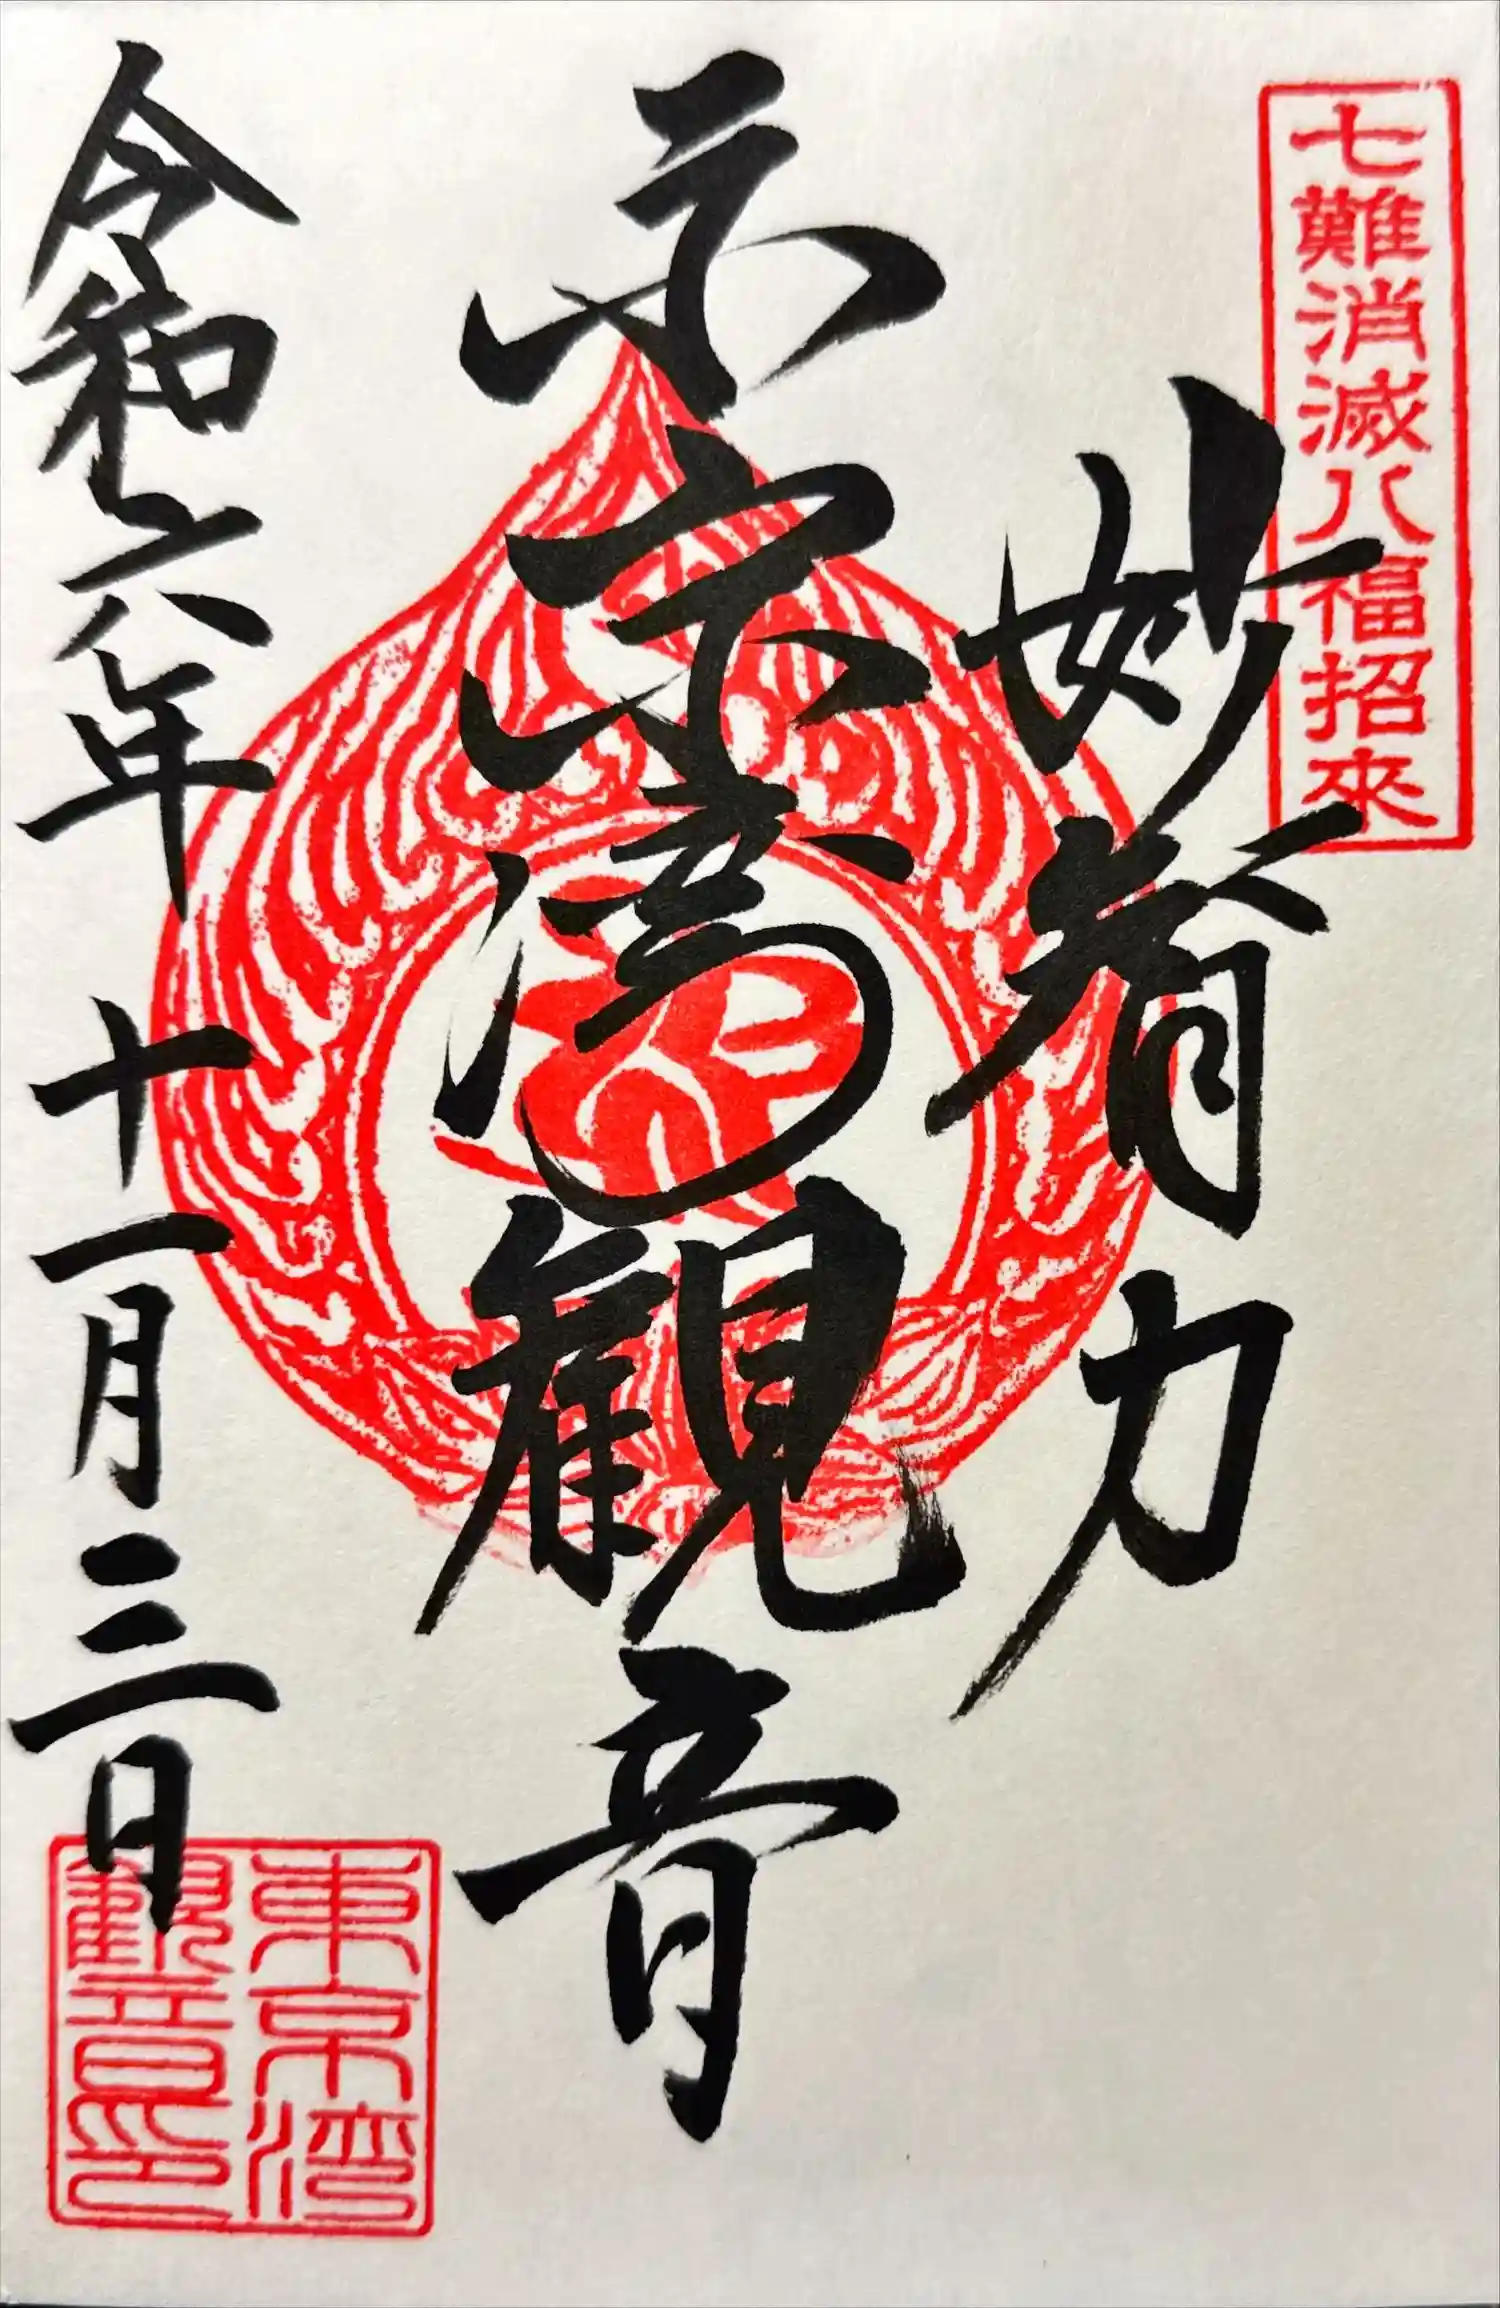 七難消滅八福招來
妙智力
東京湾観音
令和六年十一月三日
東京湾
観音印